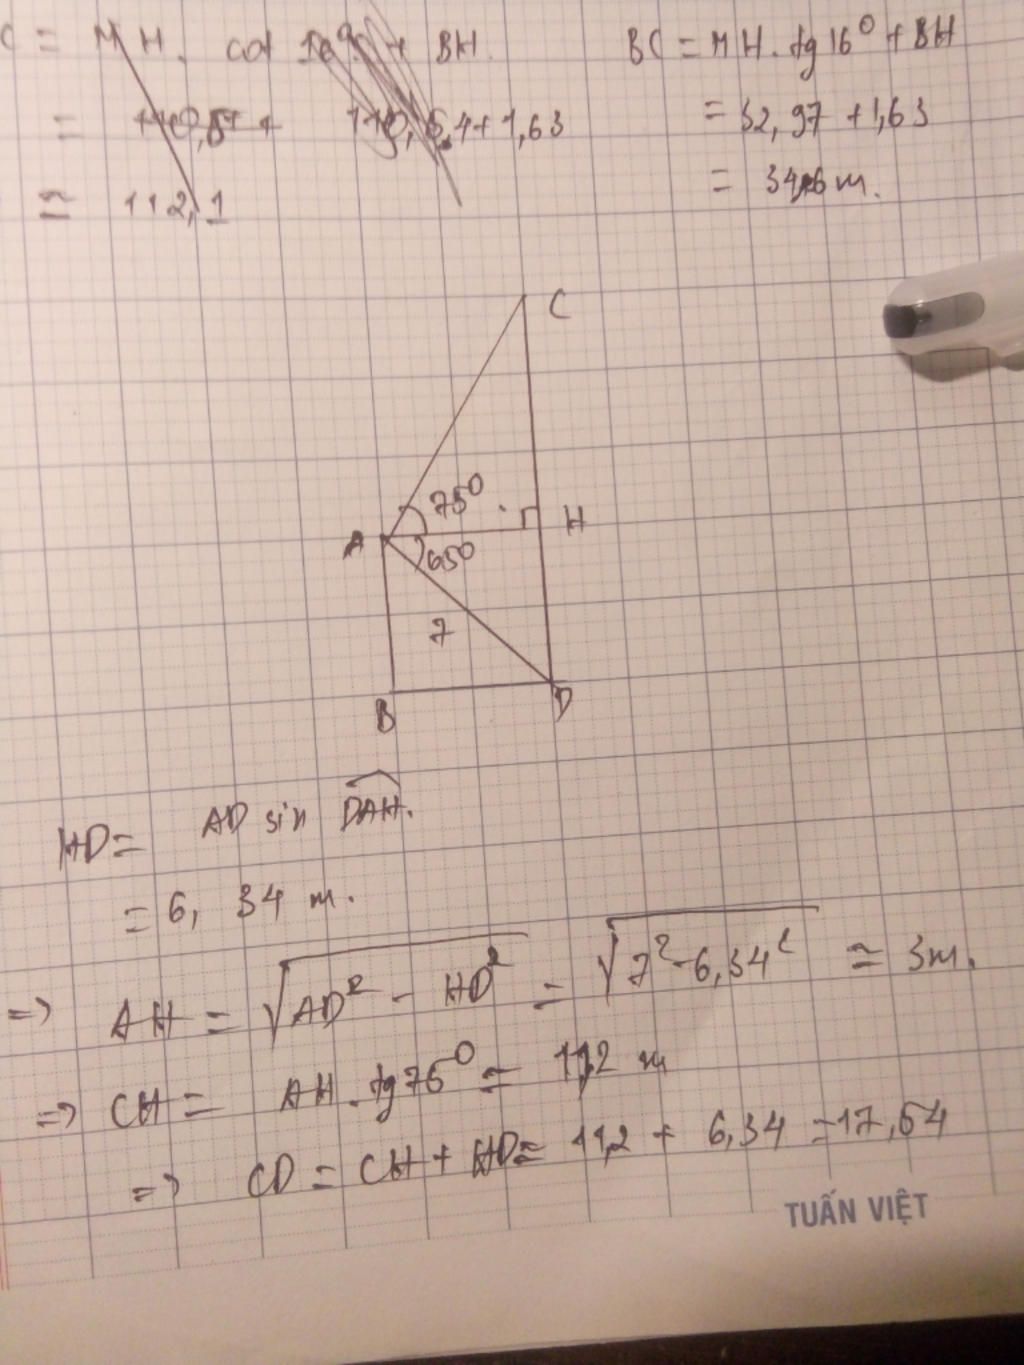 C = MH. cot 16° + BH.
= 110,51 + 110,6,4+1,63
≃ 112,1
BC = MH. tg 16° + BH
= 32,97 + 1,63
= 34,6 m.
C
75°
A
H
65°
7
B
D
HD = AD sin DAH.
= 6, 34 m.
=> AH = √AD² - HD² = √7² - 6,34² ≃ 3m.
=> CH = AH. tg 75° = 11,2 m
=> CD = CH + HD = 11,2 + 6,34 = 17,54
TUẤN VIỆT